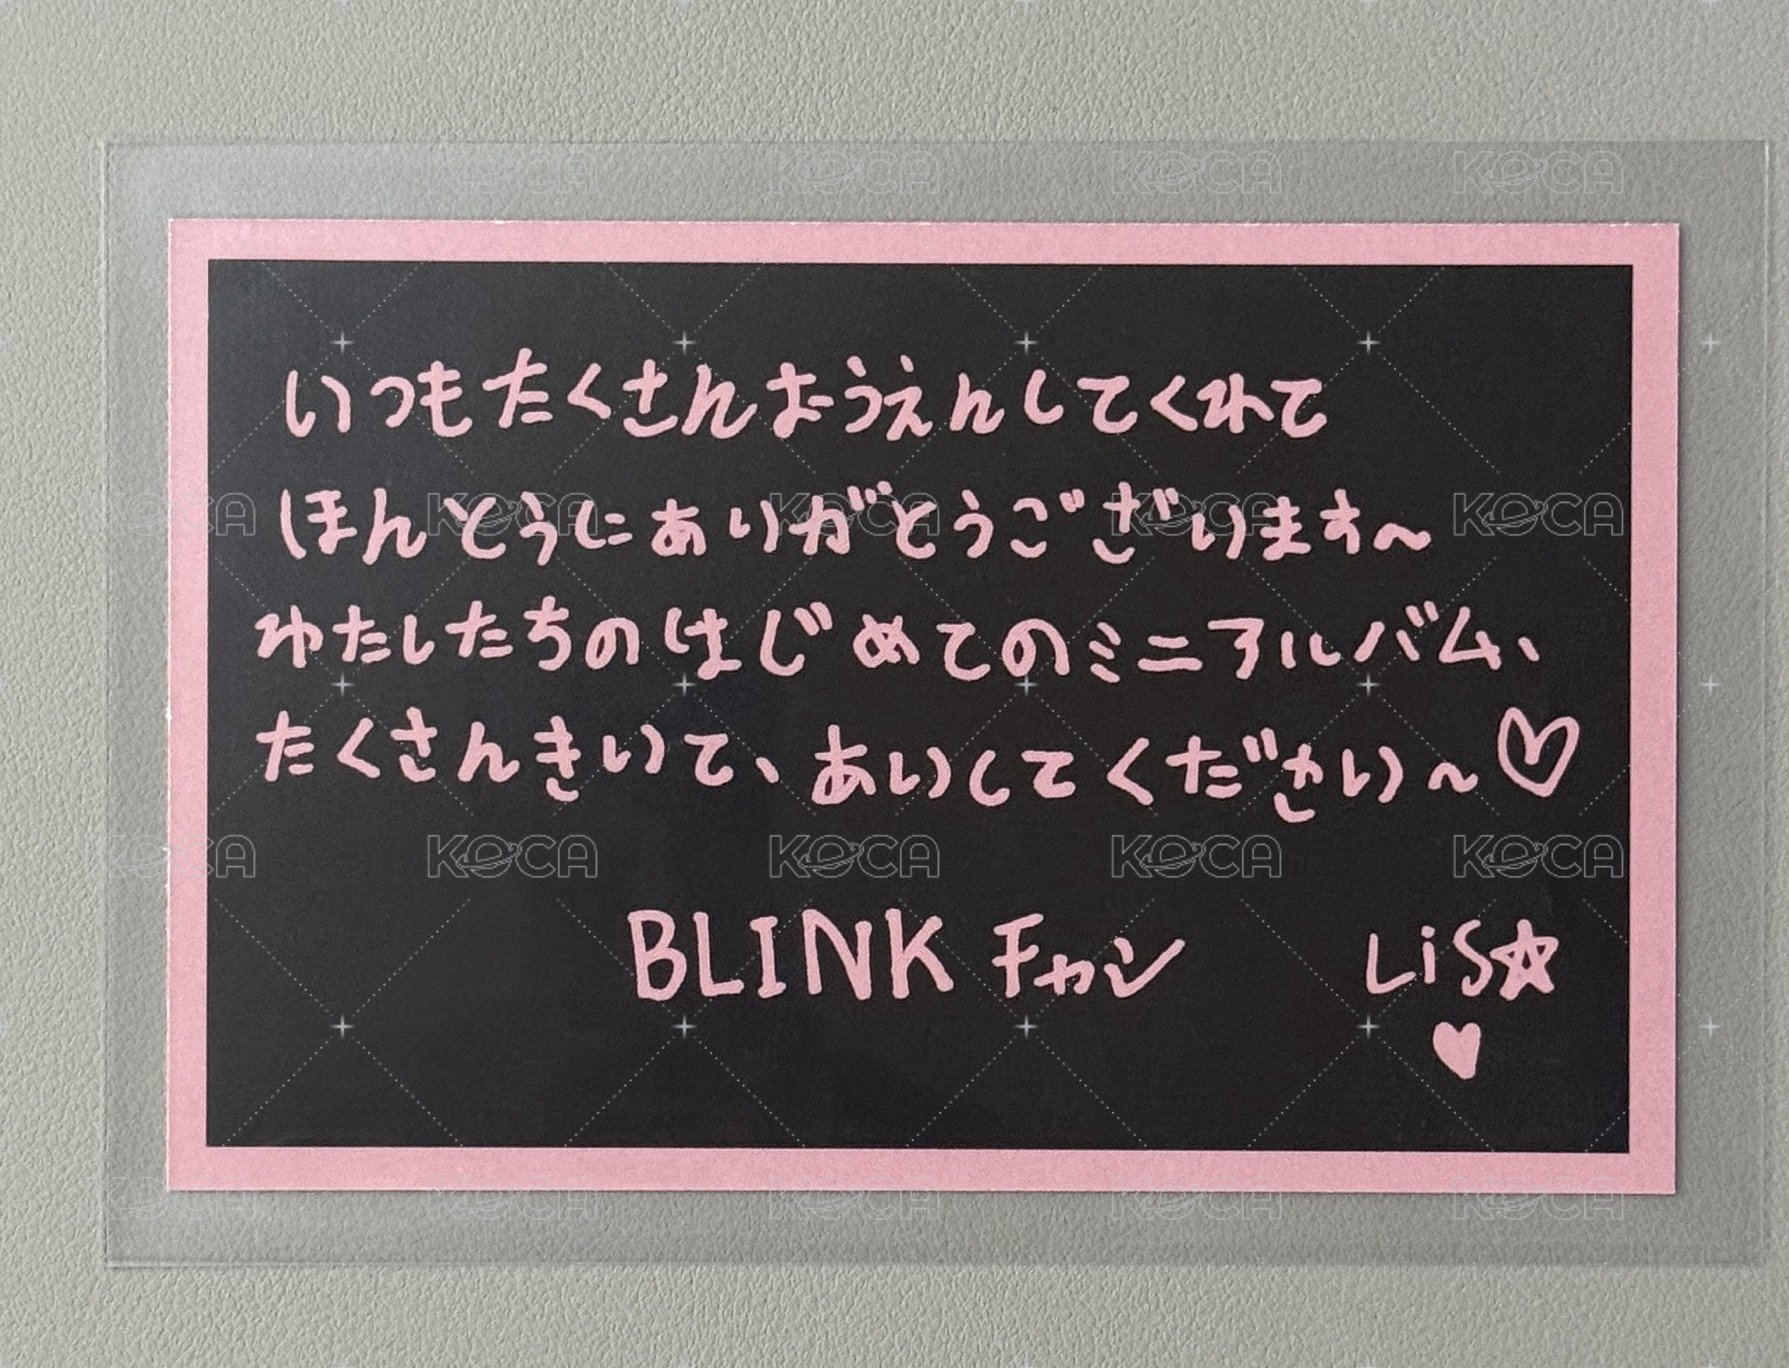 いつもたくさんおうえんしてくれて
ほんとうにありがとうございます~
わたしたちのはじめてのミニアルバム、
たくさんきいて、あいしてください~♡
BLINK チャン LiS☆
♥
KOCA KOCA KOCA KOCA
KOCA KOCA KOCA KOCA KOCA
KOCA KOCA KOCA KOCA KOCA
KOCA KOCA KOCA KOCA KOCA